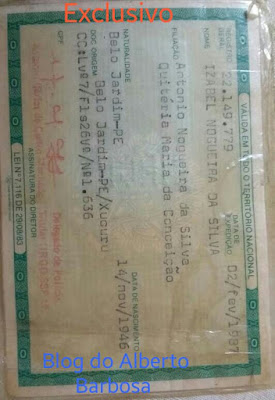 Exclusivo
VÁLIDA EM TODO O TERRITÓRIO NACIONAL
REGISTRO GERAL 2.149.779
DATA DE EXPEDIÇÃO 02/fev/1987
NOME
IZABEL NOGUEIRA DA SILVA
FILIAÇÃO
Antonio Nogueira da Silva
Quitéria Maria da Conceição
NATURALIDADE
Belo Jardim-PE
DATA DE NASCIMENTO
14/nov/1946
DOC. ORIGEM
Belo Jardim-PE/Xucuru
CC:Lv87/Fls26V0/Nº1.636
CPF
ASSINATURA DO DIRETOR
LEI Nº 7.116 DE 29/08/83
Blog do Alberto
Barbosa